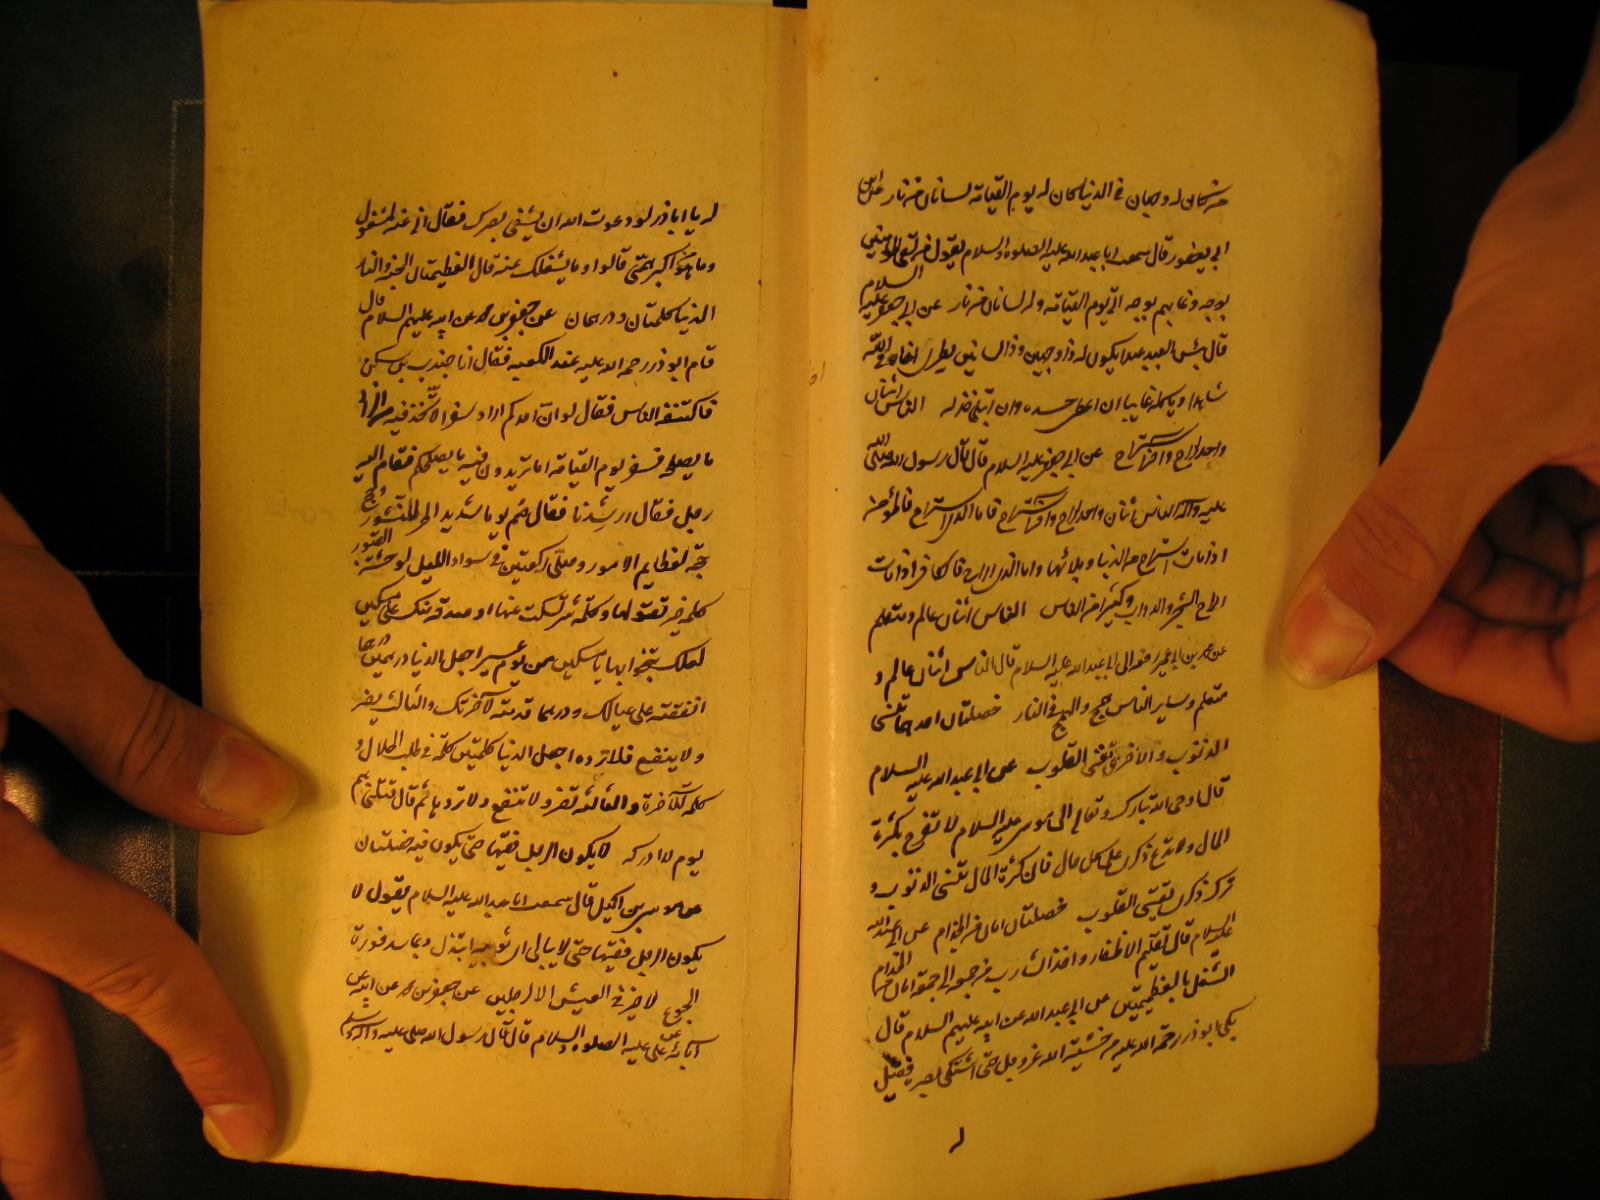 من كان له وجهان في الدنيا كان له يوم القيامة لسانان من نار عن ابن
ابي يعفور قال سمعت ابا عبد الله عليه الصلوة والسلام يقول من لقى المؤمنين
بوجه وغابهم بوجه اتى يوم القيامة وله لسانان من نار عن ابي جعفر عليه السلام
قال بئس العبد عبد يكون له ذا وجهين وذا لسانين يطرى اخاه في الله
شاهدا وياكله غايبا ان اعطى حسده وان ابتلى خذله الناس اثنان
واحد اراح واخر استراح عن ابي جعفر عليه السلام قال قال رسول الله صلى الله
عليه وآله الناس اثنان واحد اراح واخر استراح فاما الذي استراح فالمؤمن
اذا مات استراح من الدنيا وبلائها واما الذي اراح فالكافر اذا مات
اراح الشجر والدواب وكثيرا من الناس الناس اثنان عالم ومتعلم
عن محمد بن ابي عمير رفعه الى ابي عبد الله عليه السلام قال الناس اثنان عالم و
متعلم وساير الناس همج والهمج في النار خصلتان احدهما تنسى
الذنوب والاخرى تقسى القلوب عن ابي عبد الله عليه السلام
قال اوحى الله تبارك وتعالى الى موسى عليه السلام لا تفرح بكثرة
المال ولا تدع ذكرى على كل حال فان كثرة المال تنسى الذنوب و
ترك ذكرى تقسى القلوب خصلتان امان من الجذام عن ابي عبد الله
عليه السلام قال تقليم الاظفار واخذ الشارب من جمعة الى جمعة امان من الجذام
الشغل بالعظيمتين عن ابي عبد الله عن ابيه عليهم السلام قال
بكى ابو ذر رحمة الله عليه من خشية الله عز وجل حتى اشتكى بصره فقيل
له
له يا ابا ذر لو دعوت الله ان يشفى بصرك فقال انى عنه لمشغول
وما هو من اكبر همتى قالوا وما يشغلك عنه قال العظيمتان الجنة والنار
الدنيا كلمتان ودرهمان عن جعفر بن محمد عن ابيه عليهم السلام قال
قام ابو ذر رحمة الله عليه عند الكعبة فقال انا جندب بن سكن
فاكتنفه الناس فقال لو ان احدكم اراد سفرا لاتخذ فيه من الزاد
ما يصلحه فسفر يوم القيامة اما تريدون فيه ما يصلحكم فقام اليه
رجل فقال ارشدنا فقال صم يوما شديد الحر للنشور وحج
حجة لعظايم الامور وصلى ركعتين في سواد الليل لوحشة القبور
كلمة خير تقولها وكلمة شر تسكت عنها او صدقة منك على مسكين
لعلك تنجو بها يا مسكين من يوم عسير اجعل الدنيا درهمين درهما
انفقته على عيالك ودرهما قدمته لآخرتك والثالث يضر
ولا ينفع فلا ترده اجعل الدنيا كلمتين كلمة في طلب الحلال و
كلمة للآخرة والثالثة تضر ولا تنفع ولا تردها ثم قال قتلنى هم
يوم لا ادركه لا يكون الرجل فقيها حتى يكون فيه خصلتان
عن موسى بن اكيل قال سمعت ابا عبد الله عليه السلام يقول لا
يكون الرجل فقيها حتى لا يبالى اى ثوبيه ابتذل وبما سد فورة
الجوع لا خير في العيش الا لرجلين عن جعفر بن محمد عن ابيه عن
آبائه عن على عليه الصلوة والسلام قال قال رسول الله صلى عليه وآله وسلم